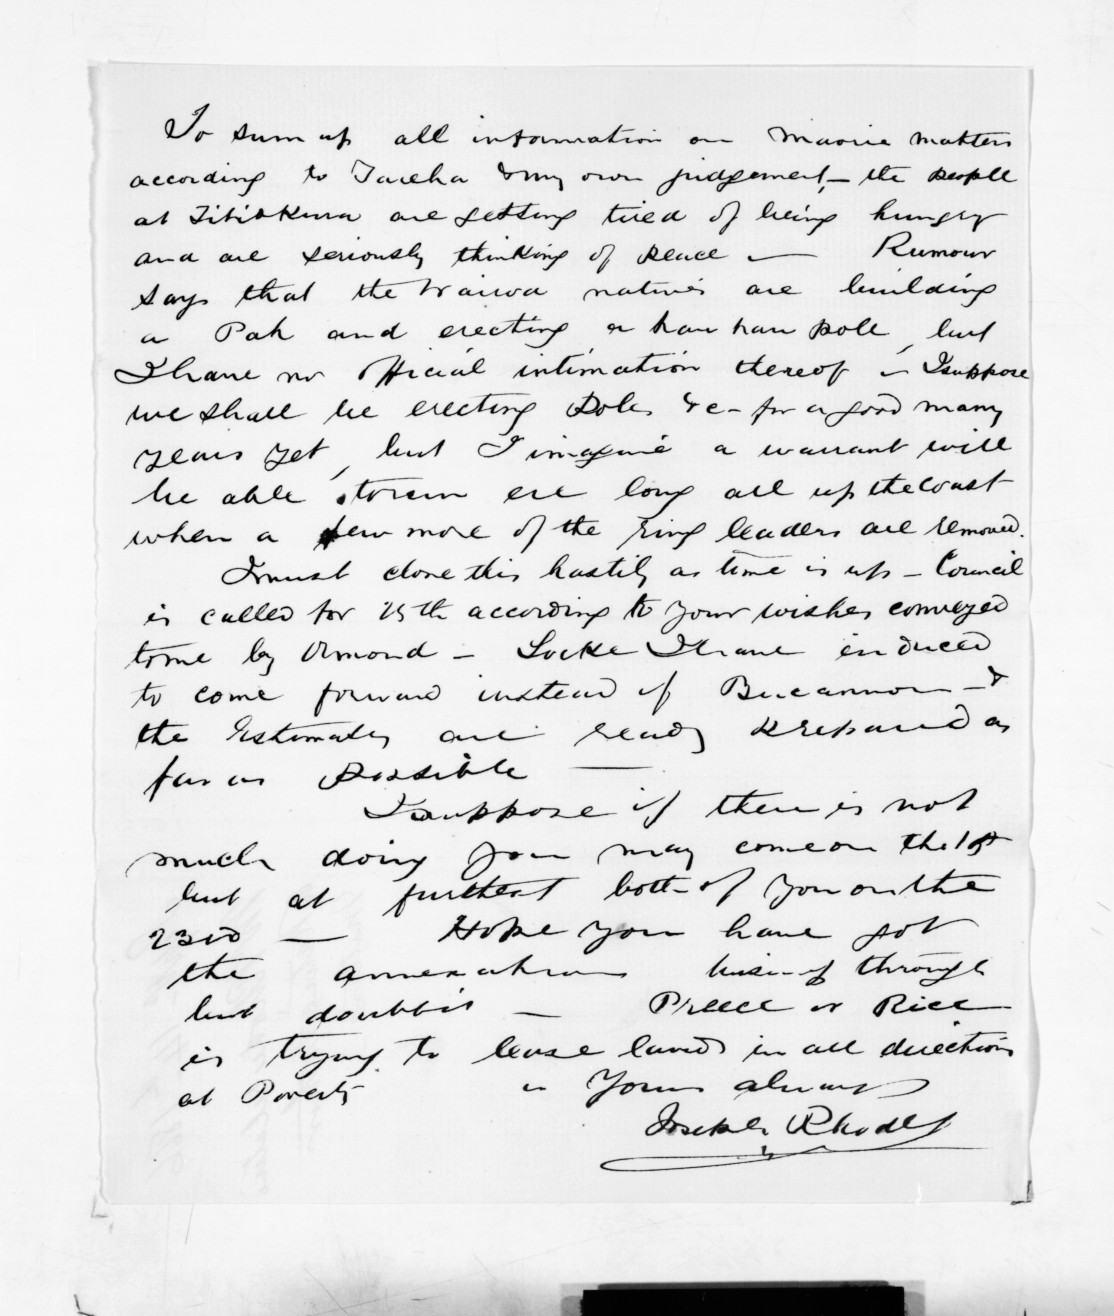 To sum up all information on Maorie matters
according to Tareha & my own judgement, – the people
at Titiokura are getting tired of being hungry
and are seriously thinking of peace – Rumour
says that the Wairoa natives are building
a Pah and erecting a hau hau pole, but
I have no official intimation thereof – I suppose
we shall be erecting Poles &c – for a good many
years yet, but I imagine a warrant will
be able to run ere long all up the Coast
when a few more of the ring leaders are removed.
I must close this hastily as time is up – Council
is called for 25th according to your wishes conveyed
to me by Ormond – Locke I have induced
to come forward instead of Bucannon – &
the Estimates are ready prepared as
far as possible –
I suppose if there is not
much doing you may come on the
but at furthest both of you on the
23rd – Hope you have got
the annexation through
but doubt it – Preece or Rice
is trying to lease lands in all directions
at Poverty – Yours always
Joseph Rhodes